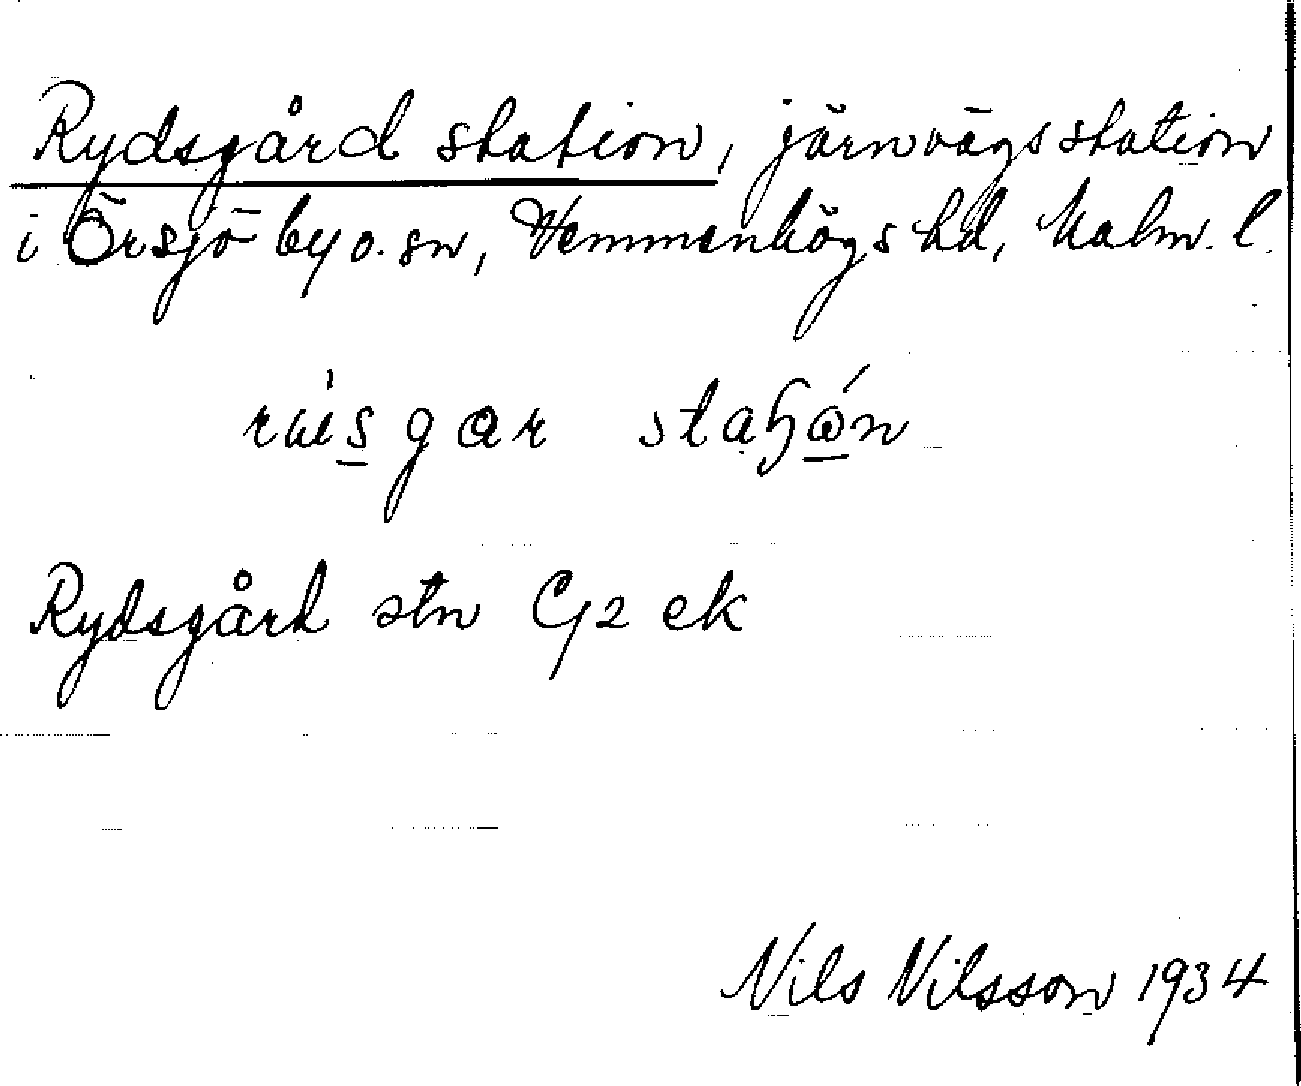 Rydsgård station, järnvägsstation
i Örsjö by o. sn, Vemmenhögs hd, Malm. l.
Rydsgård stn G2 ek
Nils Nilsson 1934